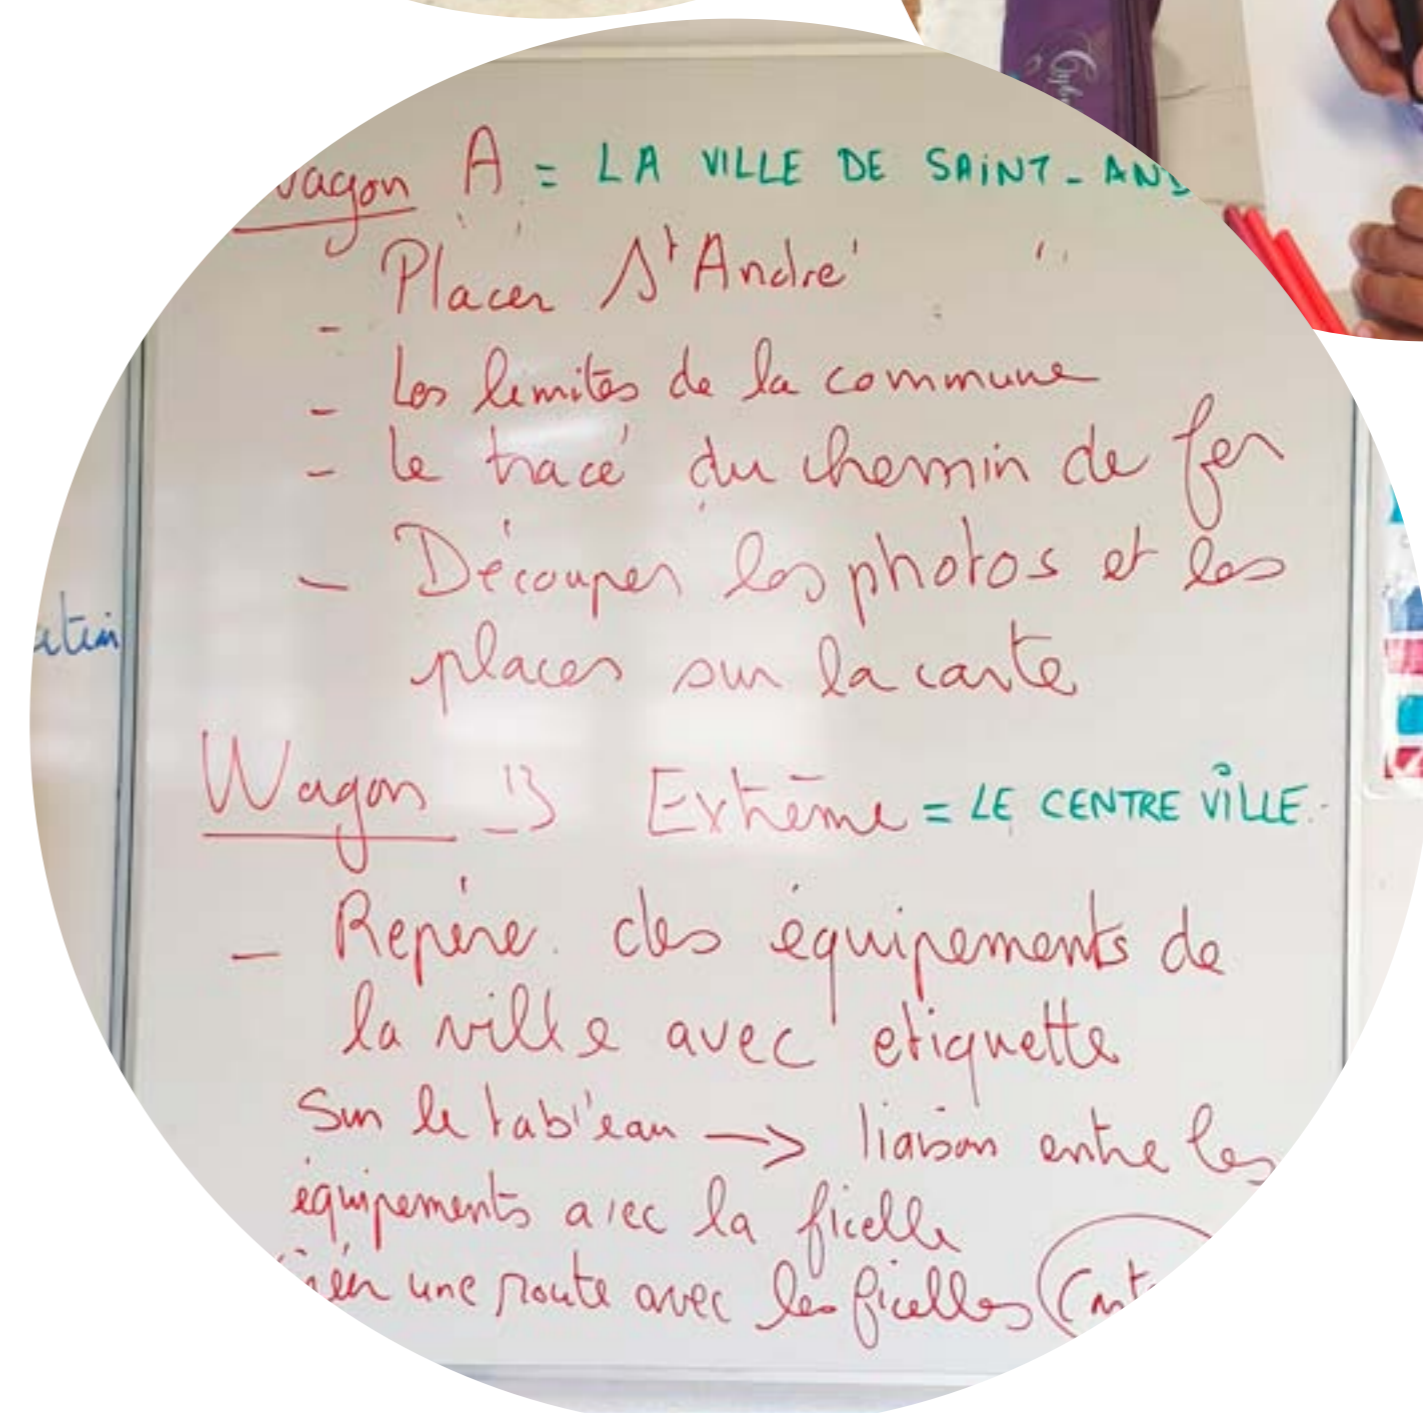 Wagon A = LA VILLE DE SAINT-AND
- Placer St André
- Les limites de la commune
- le tracé du chemin de fer
- Découper les photos et les
placer sur la carte
Wagon B Extrême = LE CENTRE VILLE.
- Repére des équipements de
la ville avec etiquette
Sur le tableau -> liaison entre les
équipements avec la ficelle
créer une route avec les ficelles